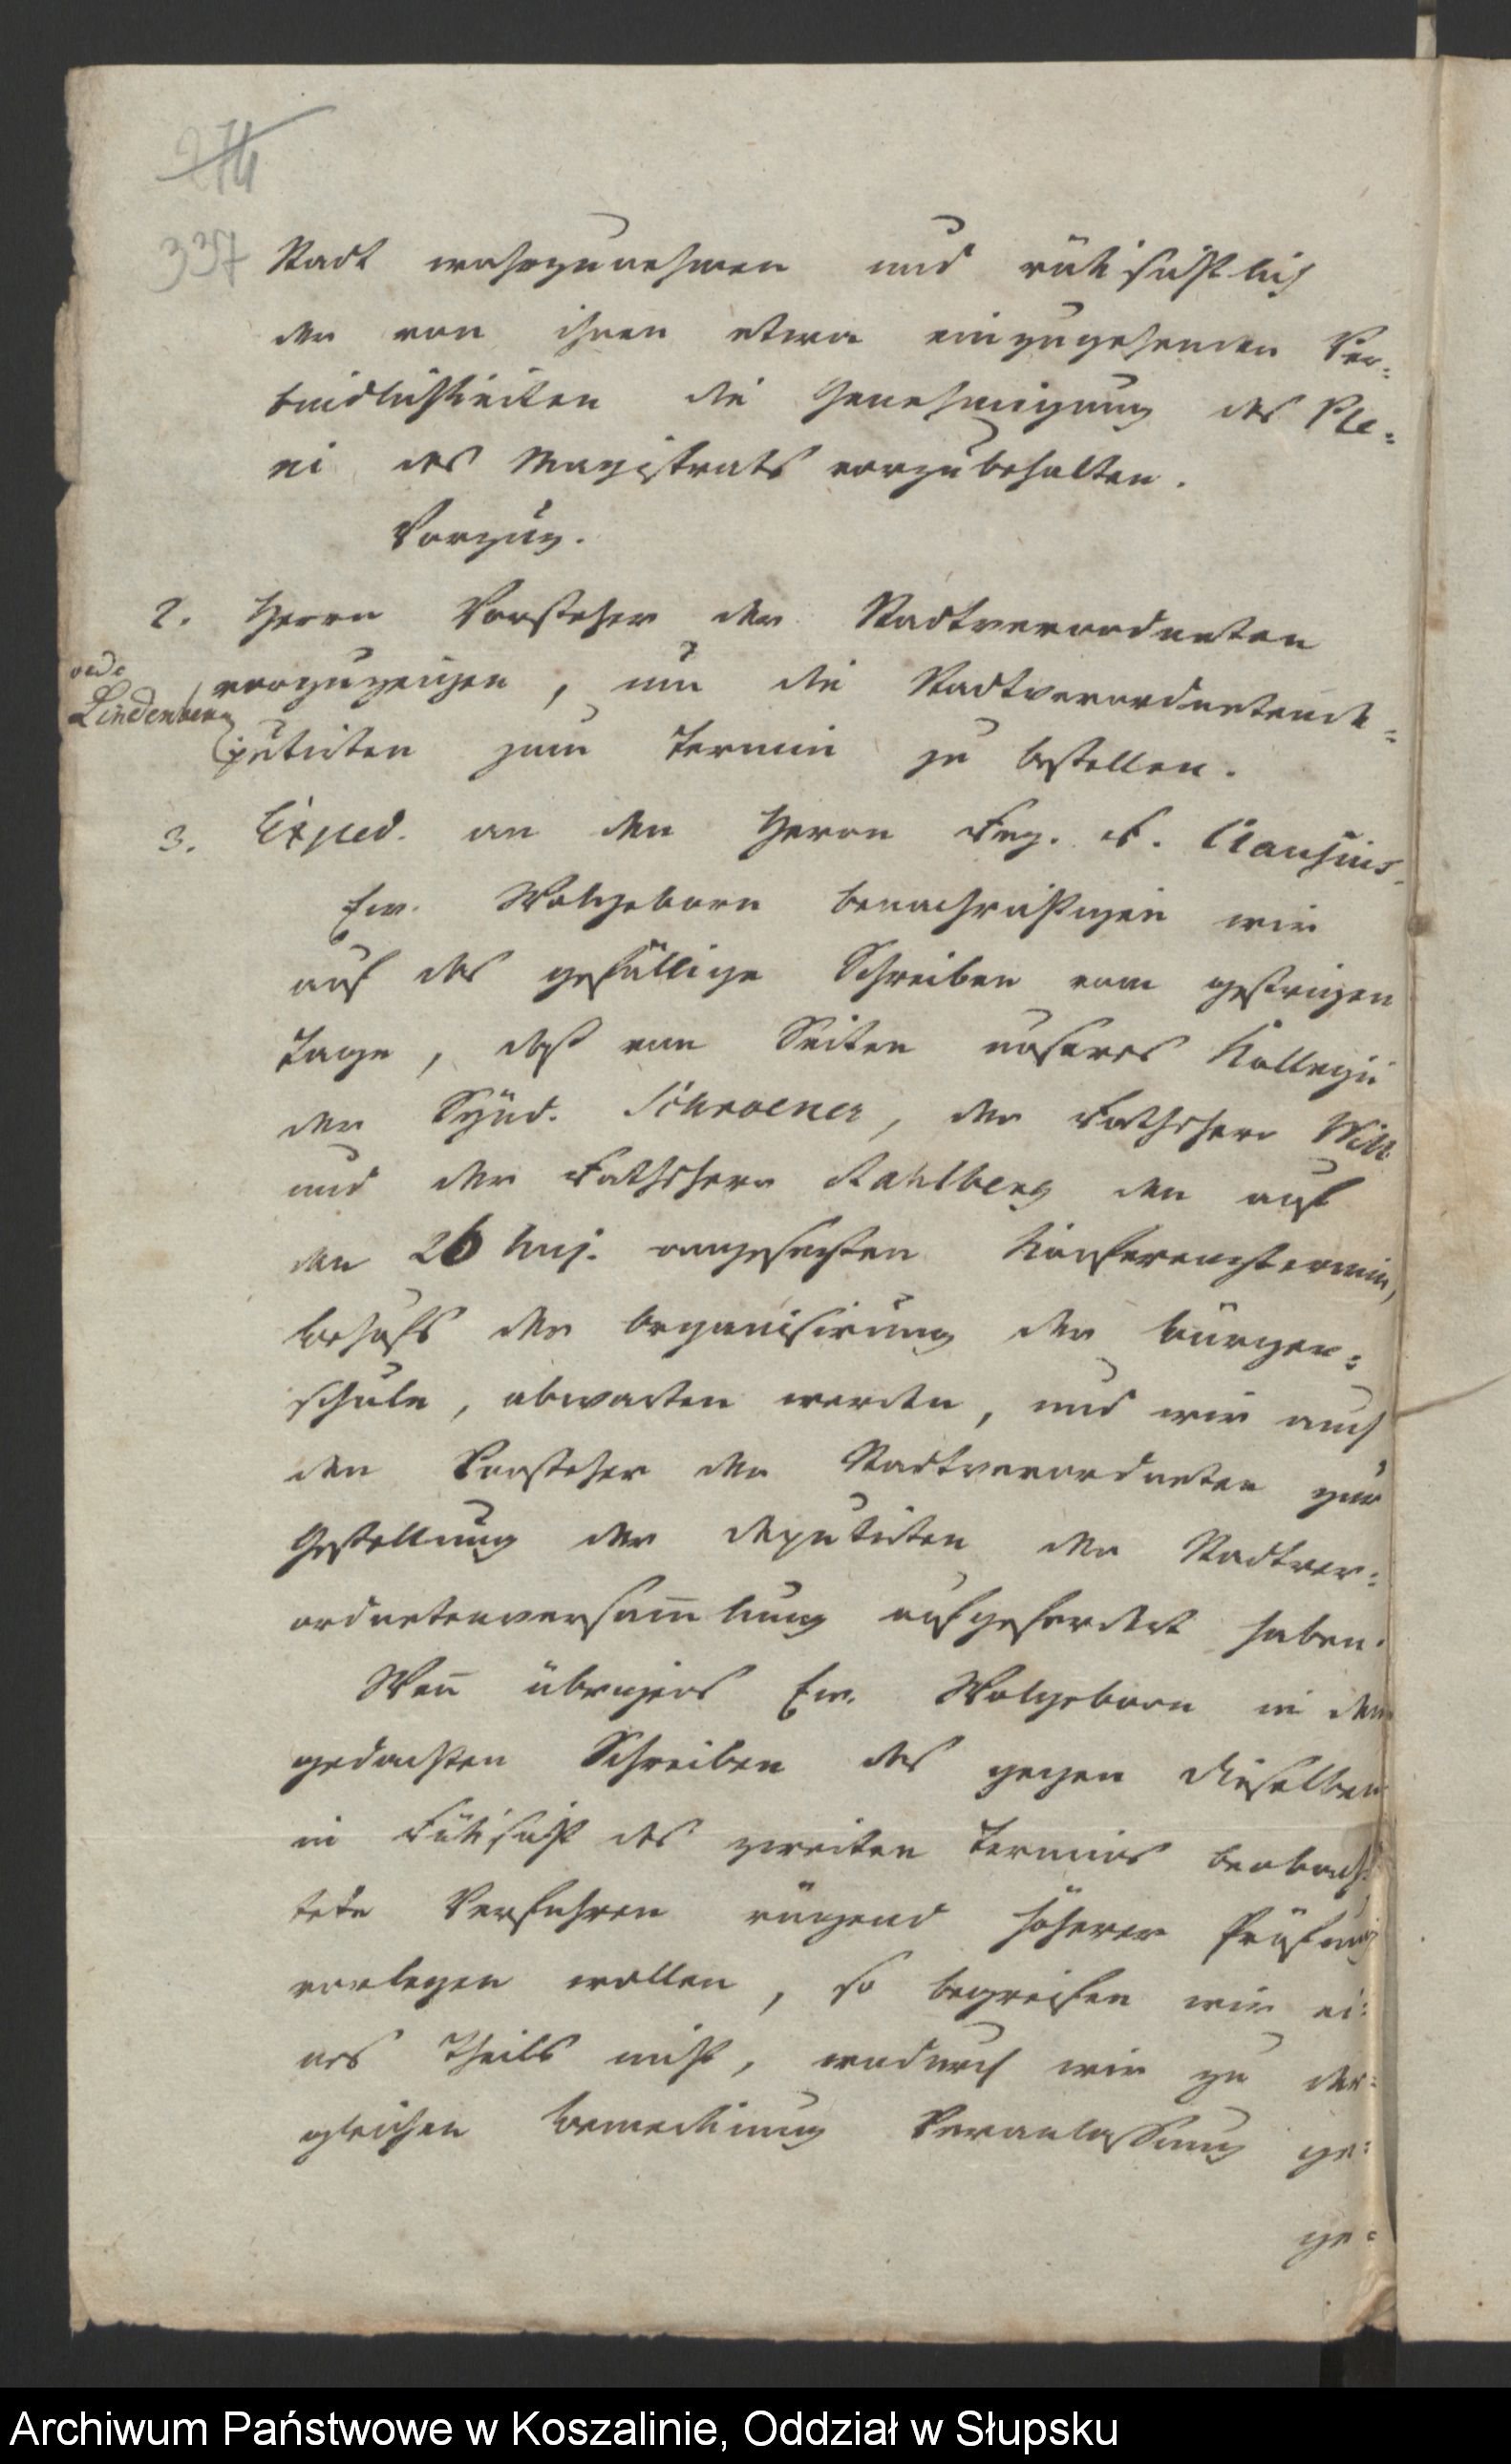 274
337
Stadt wahrzunehmen und rüksichtlich
der von ihnen etwa einzugehenden Ver-
bindlichkeiten die Genehmigung des Ple-
ni des Magistrats vorzubehalten.
Vorzug.
2. Herrn Vorsteher der Stadtverordneten
vorzuzeigen, um die Stadtverordnetende-
Lindenberg
putirten zum Termin zu bestellen.
3. Exped. an den Herrn Reg. R. Clausius.
Ew. Wolgeborn benachrichtigen wir
auf das gefällige Schreiben vom gestrigen
Tage, daß von Seiten unseres Kollegii
der Synd. Schroener, der Rathsherr Witt
und der Rathsherr Rahlberg den auf
den 26 huj. angesetzten Konferenztermin,
behufs der Organisirung der Bürger-
schule, abwarten werden, und wir auch
den Vorsteher der Stadtverordneten zur
Gestellung der Deputirten der Stadtver-
ordnetenversam̅lung aufgefordert haben.
Wen̅ übrigens Ew. Wolgeborn in dem
gedachten Schreiben das gegen dieselben
in Rüksicht des zweiten Termins beobach-
tete Verfahren rügend höherer Prüfung
vorlegen wollen, so begreifen wir ei-
nes Theils nicht, wodurch wir zu der-
gleichen Bemerkung Veranlassung ge-
ge-
Archiwum Państwowe w Koszalinie, Oddział w Słupsku